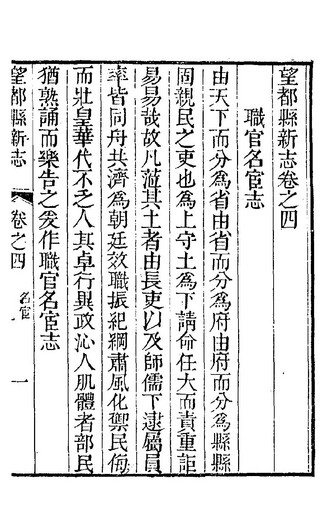 望都縣新志卷之四
職官名宦志
由天下而分為省由省而分為府由府而分為縣縣
固親民之吏也為上守土為下請命任大而責重詎
易易哉故凡蒞其土者由長吏以及師儒下逮屬員
率皆同舟共濟為朝廷效職振紀綱肅風化禦民侮
而壯皇華代不乏人其卓行異政沁人肌體者部民
猶熟誦而樂告之爰作職官名宦志
望都縣新志
卷之四
名宦
一